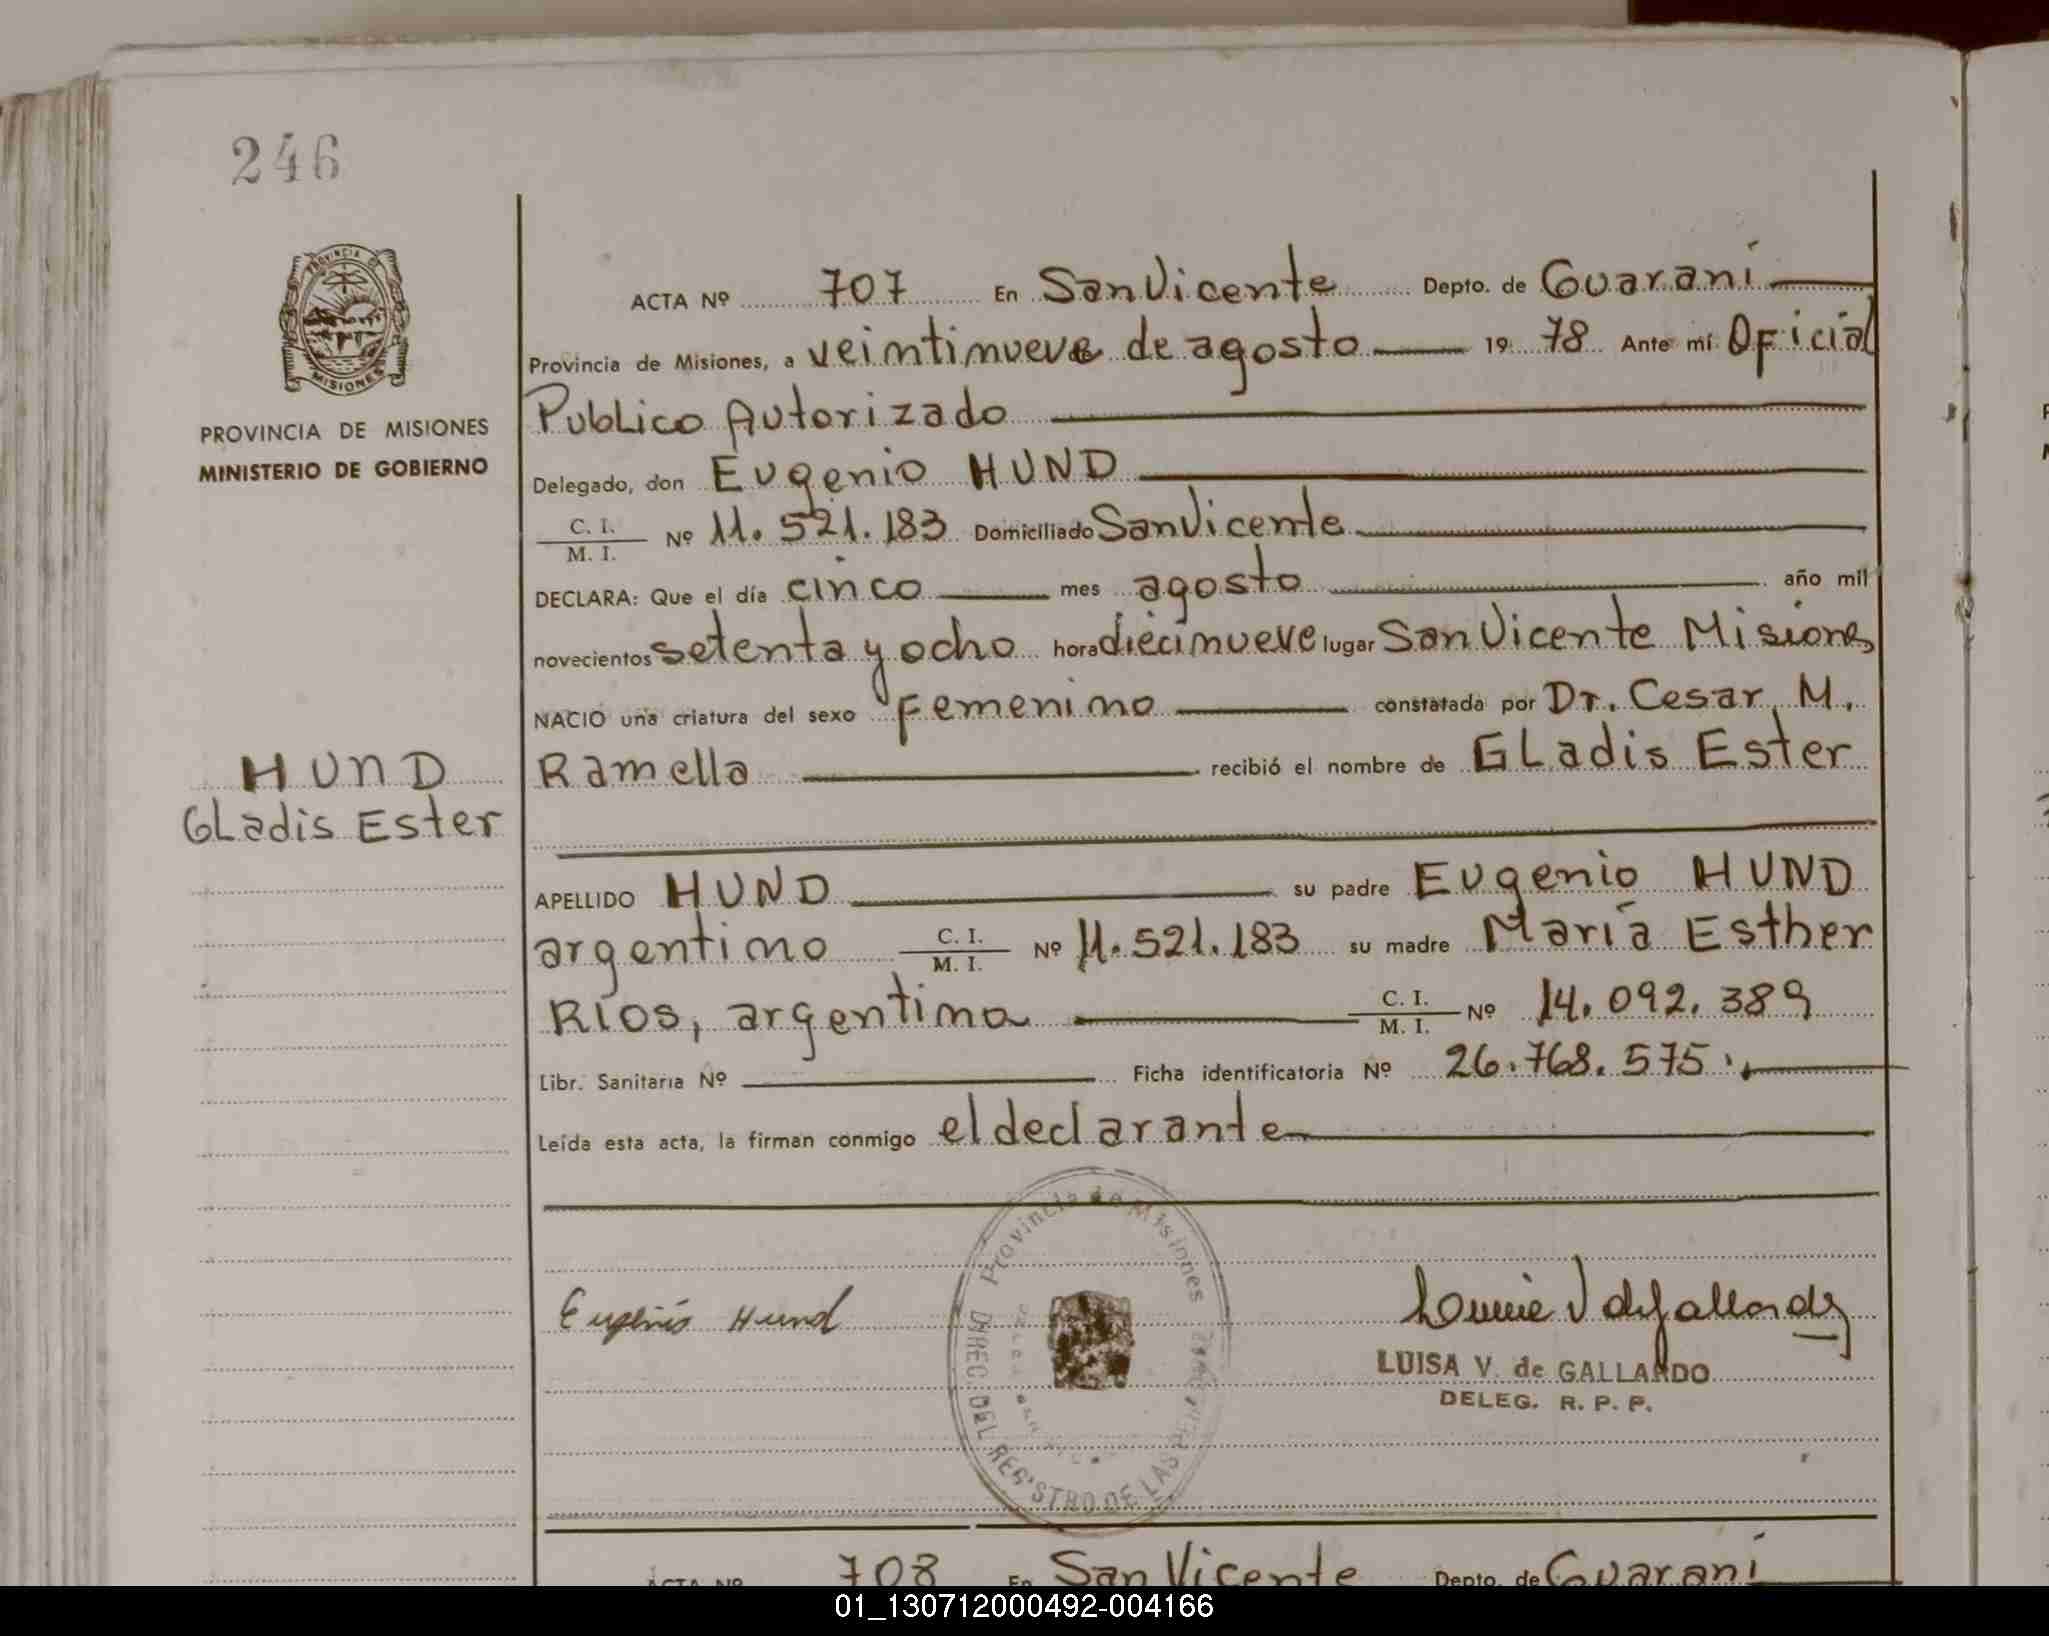 246
PROVINCIA DE MISIONES
MINISTERIO DE GOBIERNO
HUND
GLadis Ester
ACTA Nº 707 En San Vicente Depto. de Guaraní
Provincia de Misiones, a veintinueve de agosto 1978 Ante mí Oficial
Publico Autorizado
Delegado, don Eugenio HUND
C. I. / M. I. Nº 11.521.183 Domiciliado San Vicente
DECLARA: Que el día cinco mes agosto año mil
novecientos setenta y ocho hora diecinueve lugar San Vicente Misiones
NACIO una criatura del sexo Femenino constatada por Dr. Cesar M.
Ramella recibió el nombre de GLadis Ester
APELLIDO HUND su padre Eugenio HUND
argentino C. I. / M. I. Nº 11.521.183 su madre María Esther
Ríos, argentina C. I. / M. I. Nº 14.092.389
Libr. Sanitaria Nº Ficha identificatoria Nº 26.768.575
Leída esta acta, la firman conmigo el declarante
Provincia de Misiones
DIREC. DEL REGISTRO DE LAS
Eugenio Hund
LUISA V. de GALLARDO
DELEG. R. P. P.
ACTA Nº 708 En San Vicente Depto. de Guaraní
01_130712000492-004166